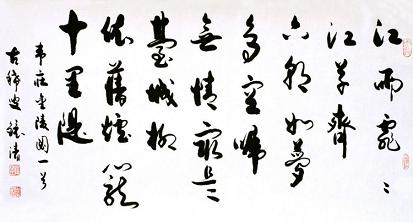 江雨霏霏
江草齊
六朝如夢
鳥空啼
無情最是
臺城柳
依舊煙籠
十里堤
韋莊金陵圖一首
古稀叟